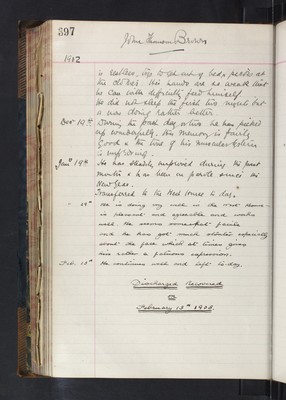 397
John Thomson Brown
1902
is restless, tries to get out of bed, & picks at
the clothes. His hands are so weak that
he can with difficulty feed himself.
He did not sleep the first two nights but
is now doing rather better.
Dec 19th. During the past days he has picked
up wonderfully, his memory is fairly
good & the tone of his muscular system
is improving.
Jany 19th He has steadily improved during the past
month & has been on parole since the
New Year.
Transferred to the West House to day.
" 28th He is doing very well in the West House
is pleasant and agreeable and works
well. He seems somewhat facile
and he has got much stouter especially
about the face which at times gives
him rather a fatuous expression.
Feb. 13th He continues well and left to-day.
Discharged Recovered
on
February 13th 1903.